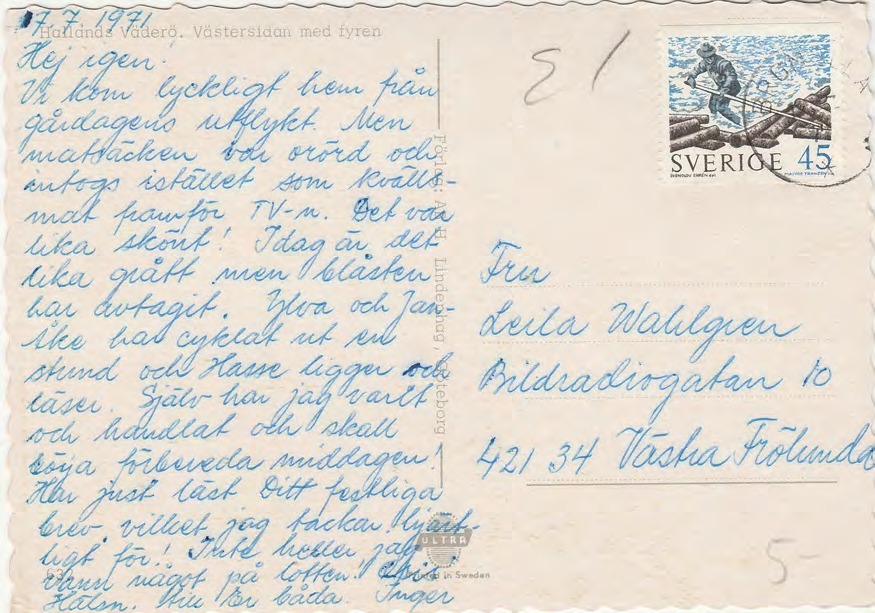 7.7 1971
Hallands Väderö. Västersidan med fyren
Hej igen!
Vi kom lyckligt hem från
gårdagens utflykt. Men
matsäcken var orörd och
intogs istället som kvälls-
mat framför TV-n. Det var
lika skönt! Idag är det
lika grått men blåsten
har avtagit. Ylva och Jan-
Åke har cyklat ut en
stund och Hasse ligger och
läser. Själv har jag varit
och handlat och skall
börja förbereda middagen!
Har just läst Ditt festliga
brev, vilket jag tackar hjärt-
ligt för! Inte heller jag
vann något på lotten!
Hälsn. till Er båda. Inger
Förlag: A.-H. Lindenhag, Göteborg
ULTRA
Printed in Sweden
SVERIGE 45
Fru
Leila Wahlgren
Bildradiogatan 10
421 34 Västra Frölunda
5-